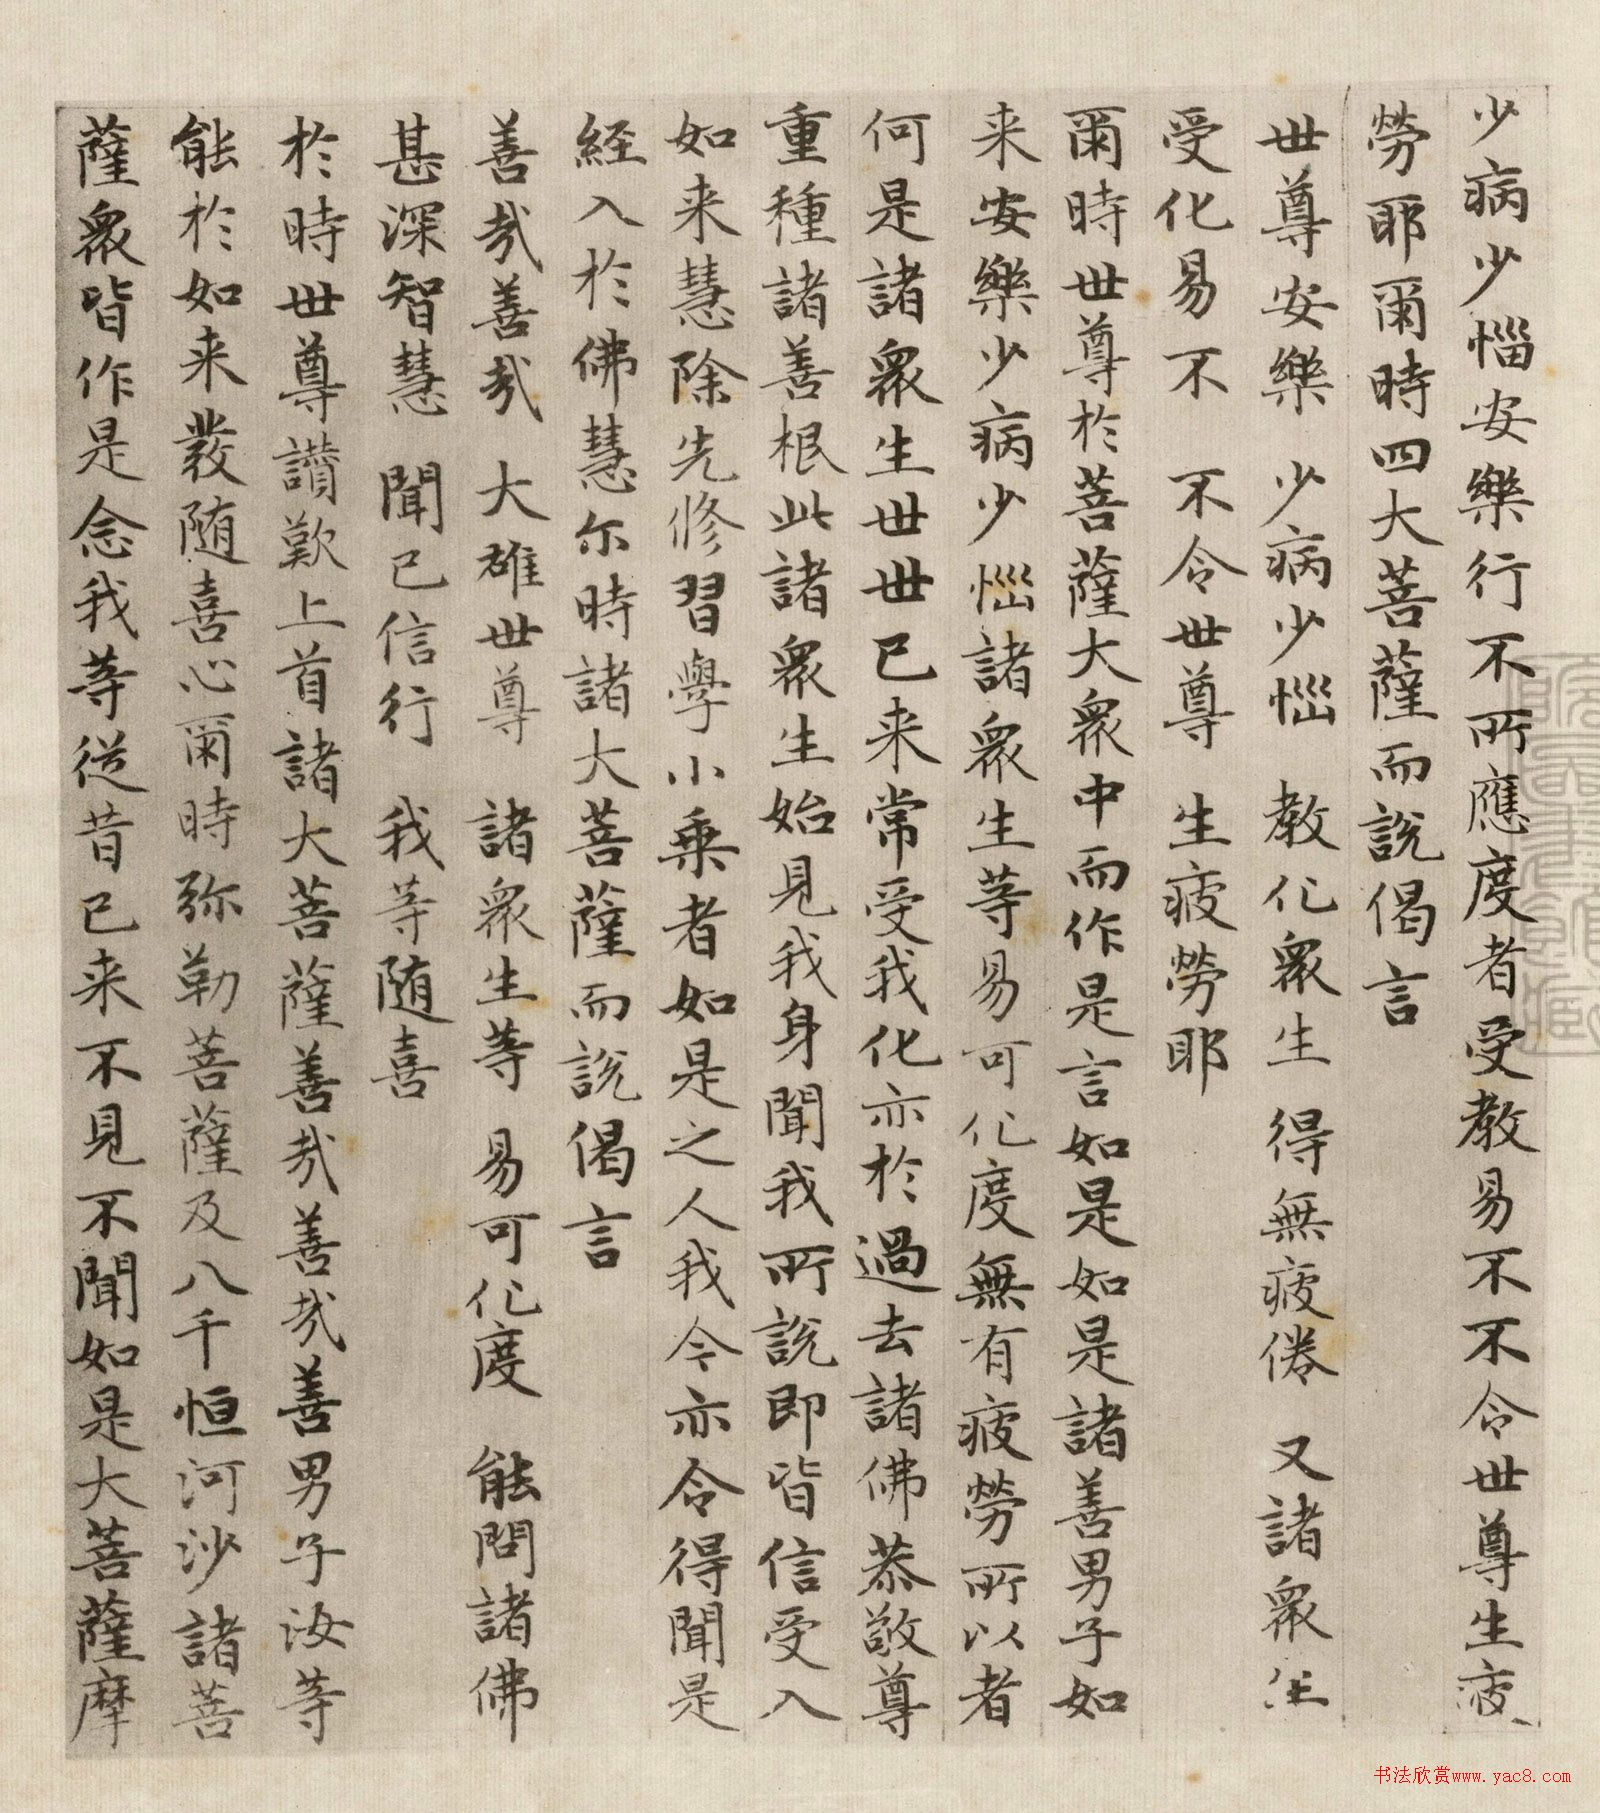 少病少惱安樂行不所應度者受教易不不令世尊生疲
勞耶爾時四大菩薩而說偈言
世尊安樂　少病少惱　教化衆生　得無疲倦　又諸衆生
受化易不　不令世尊　生疲勞耶
爾時世尊於菩薩大衆中而作是言如是如是諸善男子如
来安樂少病少惱諸衆生等易可化度無有疲勞所以者
何是諸衆生世世已来常受我化亦於過去諸佛恭敬尊
重種諸善根此諸衆生始見我身聞我所說即皆信受入
如来慧除先修習學小乗者如是之人我今亦令得聞是
経入於佛慧尔時諸大菩薩而說偈言
善哉善哉　大雄世尊　諸衆生等　易可化度　能問諸佛
甚深智慧　聞已信行　我等随喜
於時世尊讚歎上首諸大菩薩善哉善哉善男子汝等
能於如来發随喜心爾時弥勒菩薩及八千恒河沙諸菩
薩衆皆作是念我等従昔已来不見不聞如是大菩薩摩
书法欣赏www.yac8.com